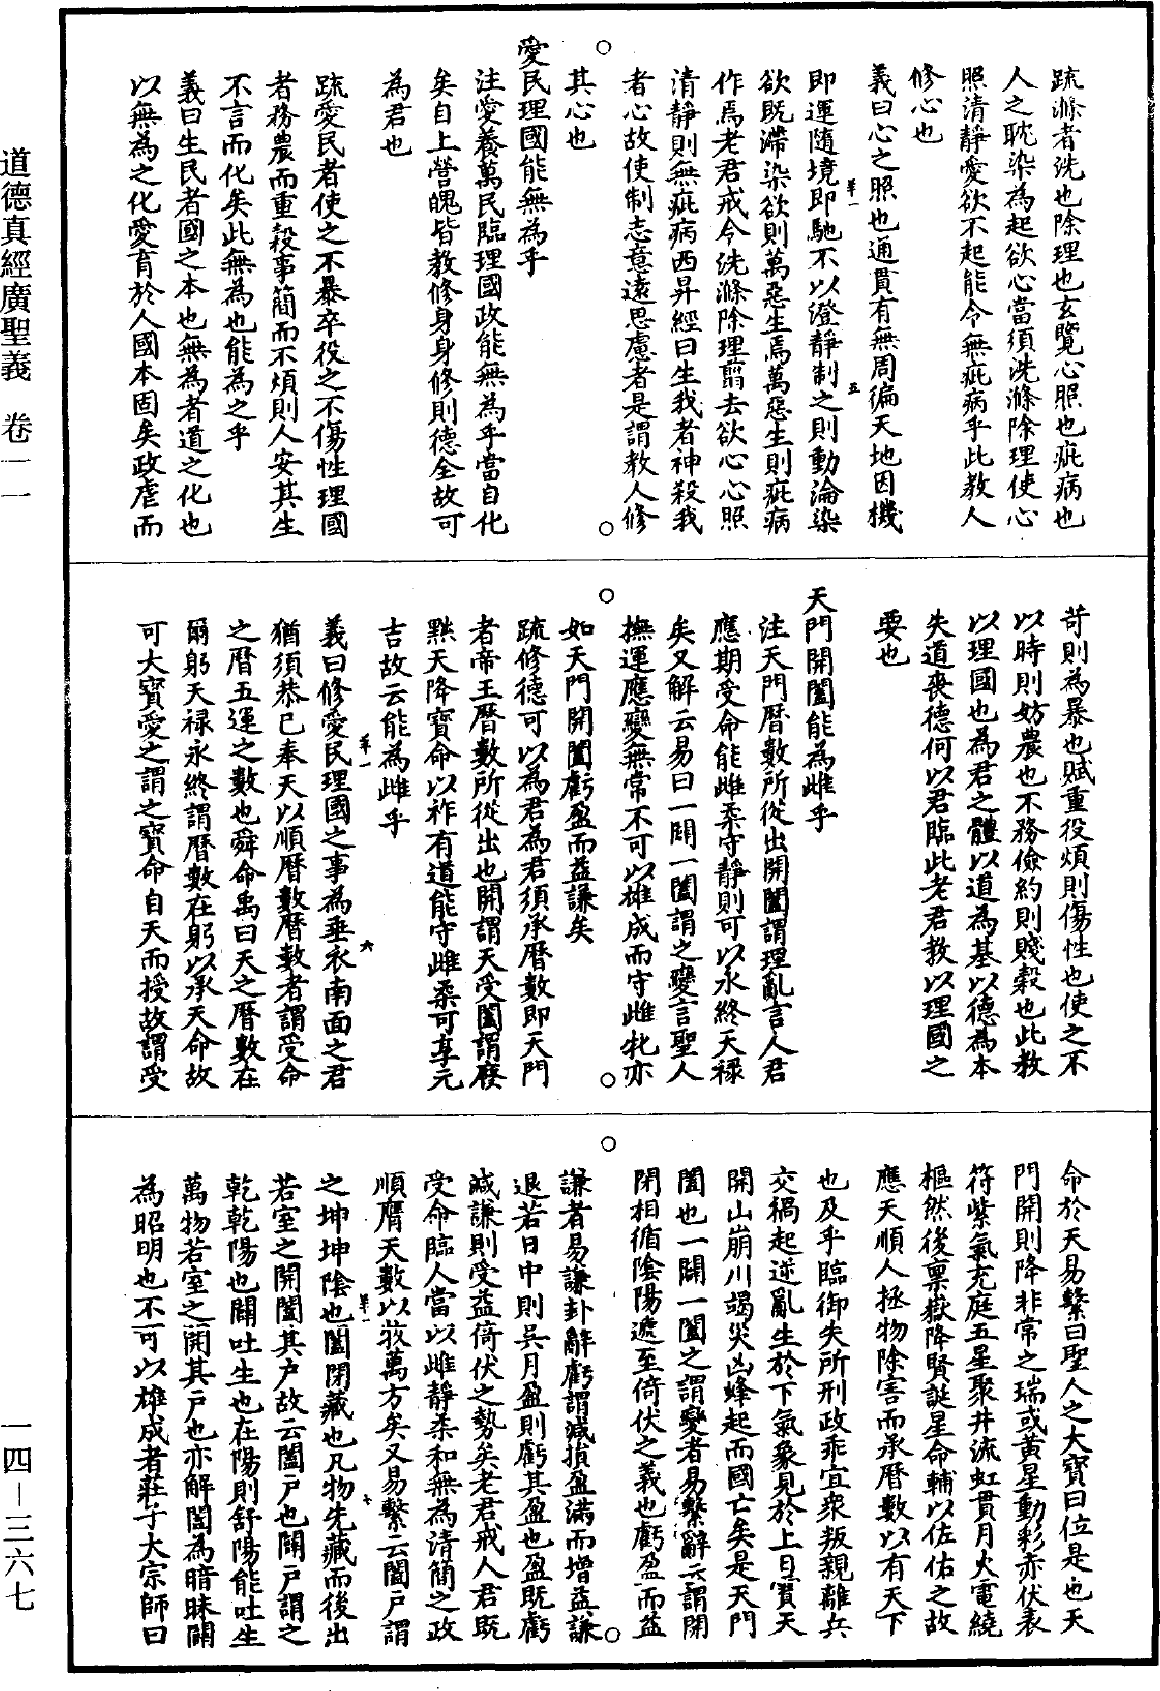 疏滌者洗也除理也玄覽心照也疵病也
人之耽染為起欲心當須洗滌除理使心
照清靜愛欲不起能令無疵病乎此教人
修心也
義曰心之照也通貫有無周徧天地因機
即運隨境即馳不以澄靜制之則動淪染
欲既滯染欲則萬惡生焉萬惡生則疵病
作焉老君戒令洗滌除理翦去欲心心照
清靜則無疵病西昇經曰生我者神殺我
者心故使制志意遠思慮者是謂教人修
其心也
愛民理國能無為乎
注愛養萬民臨理國政能無為乎當自化
矣自上營魄皆教修身身修則德全故可
為君也
疏愛民者使之不暴卒役之不傷性理國
者務農而重穀事簡而不煩則人安其生
不言而化矣此無為也能為之乎
義曰生民者國之本也無為者道之化也
以無為之化愛育於人國本固矣政虐而
苛則為暴也賦重役煩則傷性也使之不
以時則妨農也不務儉約則賤穀也此教
以理國也為君之體以道為基以德為本
失道喪德何以君臨此老君教以理國之
要也
天門開闔能為雌乎
注天門曆數所從出開闔謂理亂言人君
應期受命能雌柔守靜則可以永終天祿
矣又解云易曰一闢一闔謂之變言聖人
撫運應變無常不可以雄成而守雌牝亦
如天門開闔虧盈而益謙矣
疏修德可以為君為君須承曆數即天門
者帝王曆數所從出也開謂天受闔謂廢
黜天降寶命以祚有道能守雌柔可享元
吉故云能為雌乎
義曰修愛民理國之事為垂衣南面之君
猶須恭己奉天以順曆數曆數者謂受命
之曆五運之數也舜命禹曰天之曆數在
爾躬天祿永終謂曆數在躬以承天命故
可大寶愛之謂之寶命自天而授故謂受
命於天易繫曰聖人之大寶曰位是也天
門開則降非常之瑞或黃星動彩赤伏表
符紫氣充庭五星聚井流虹貫月火電繞
樞然後稟嶽降賢誕星命輔以佐佑之故
應天順人拯物除害而承曆數以有天下
也及乎臨御失所刑政乖宜眾叛親離兵
交禍起逆亂生於下氣象見於上日霣天
開山崩川竭災凶蜂起而國亡矣是天門
闔也一闢一闔之謂變者易繫辭云謂開
閉相循陰陽遞至倚伏之義也虧盈而益
謙者易謙卦辭虧謂減損盈滿而增益謙
退若日中則昃月盈則虧其盈也盈既虧
減謙則受益倚伏之勢矣老君戒人君既
受命臨人當以雌靜柔和無為清簡之政
順膺天數以牧萬方矣又易繫云闔戶謂
之坤坤陰也闔閉藏也凡物先藏而後出
若室之開闔其戶故云闔戶也闢戶謂之
乾乾陽也闢吐生也在陽則舒陽能吐生
萬物若室之開其戶也亦解闔為暗昧闢
為昭明也不可以雄成者莊子大宗師曰
道德真經廣聖義　卷一一
一四—三六七